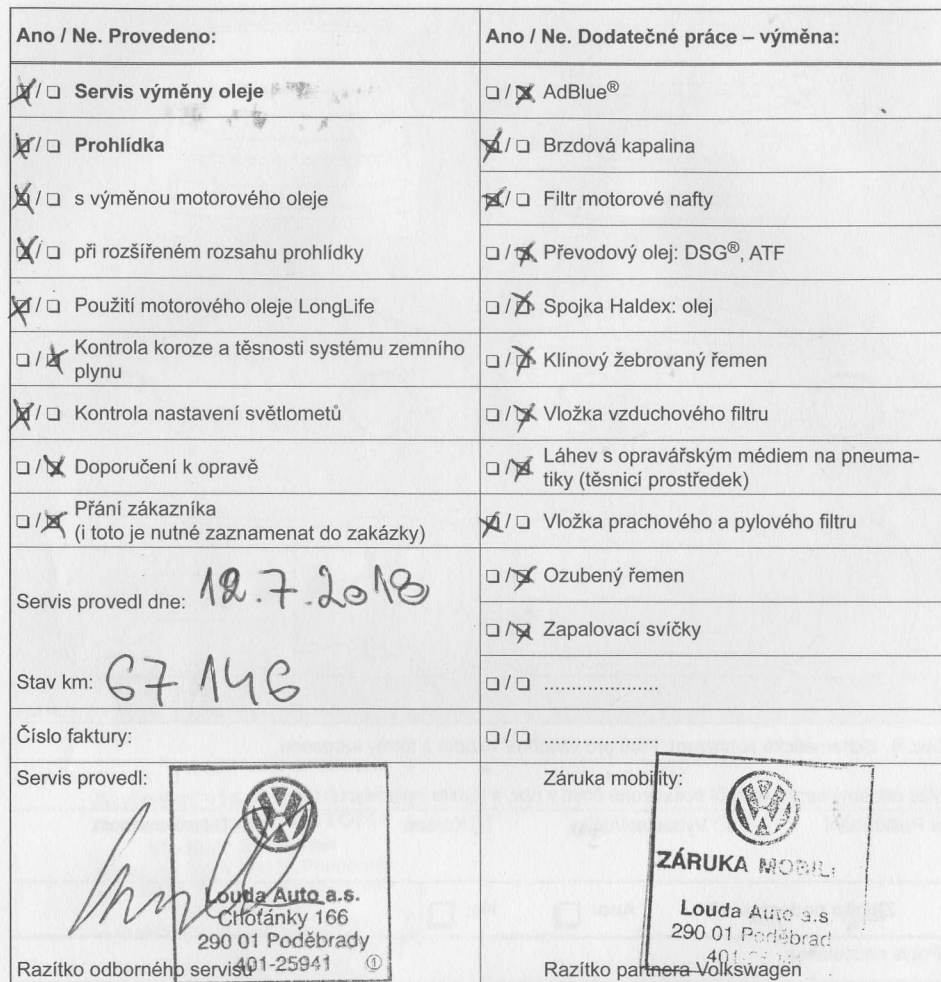 Ano / Ne. Provedeno:
Servis výměny oleje
Prohlídka
s výměnou motorového oleje
při rozšířeném rozsahu prohlídky
Použití motorového oleje LongLife
Kontrola koroze a těsnosti systému zemního
plynu
Kontrola nastavení světlometů
Doporučení k opravě
Přání zákazníka
(i toto je nutné zaznamenat do zakázky)
Servis provedl dne: 12.7.2018
Stav km: 67 146
Číslo faktury:
Servis provedl:
Louda Auto a.s.
Choťánky 166
290 01 Poděbrady
401-25941 ①
Razítko odborného servisu
Ano / Ne. Dodatečné práce – výměna:
AdBlue®
Brzdová kapalina
Filtr motorové nafty
Převodový olej: DSG®, ATF
Spojka Haldex: olej
Klínový žebrovaný řemen
Vložka vzduchového filtru
Láhev s opravářským médiem na pneuma-
tiky (těsnicí prostředek)
Vložka prachového a pylového filtru
Ozubený řemen
Zapalovací svíčky
Záruka mobility:
ZÁRUKA MOBILI
Louda Auto a.s
290 01 Poděbrad
401-
Razítko partnera Volkswagen